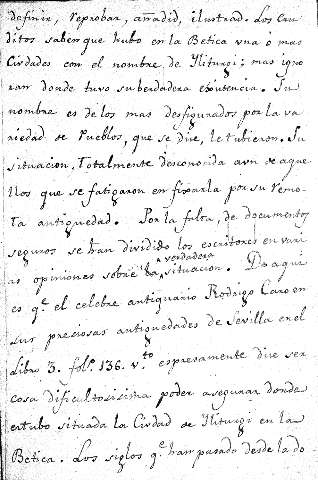 definir, reprobar, añadid, ilustrad. Los Eru
ditos saben que hubo en la Betica vna ó mas
Civdades con el nombre de Iliturgi; mas igno
ran donde tuvo su berdadera existencia. Su
nombre es de los mas desfigurados por la va
riedad de Pueblos, que se dice, le tubieron. Su
situacion, totalmente desconocida avn de aque
llos que se fatigaron en fixarla por su remo
ta antiguedad. Por la falta, de documentos
seguros se han dividido los escritores en vari
as opiniones sobre la verdadera situacion. De aqui
es q.e el celebre antiquario Rodrigo Caro en
sus preciosas antiguedades de Sevilla en el
Libro 3. fol.o 136. v.to espresamente dice ser
cosa dificultosisima poder asegurar donde
estubo situada la Civdad de Iliturgi en la
Betica. Los siglos q.e han pasado desde la do